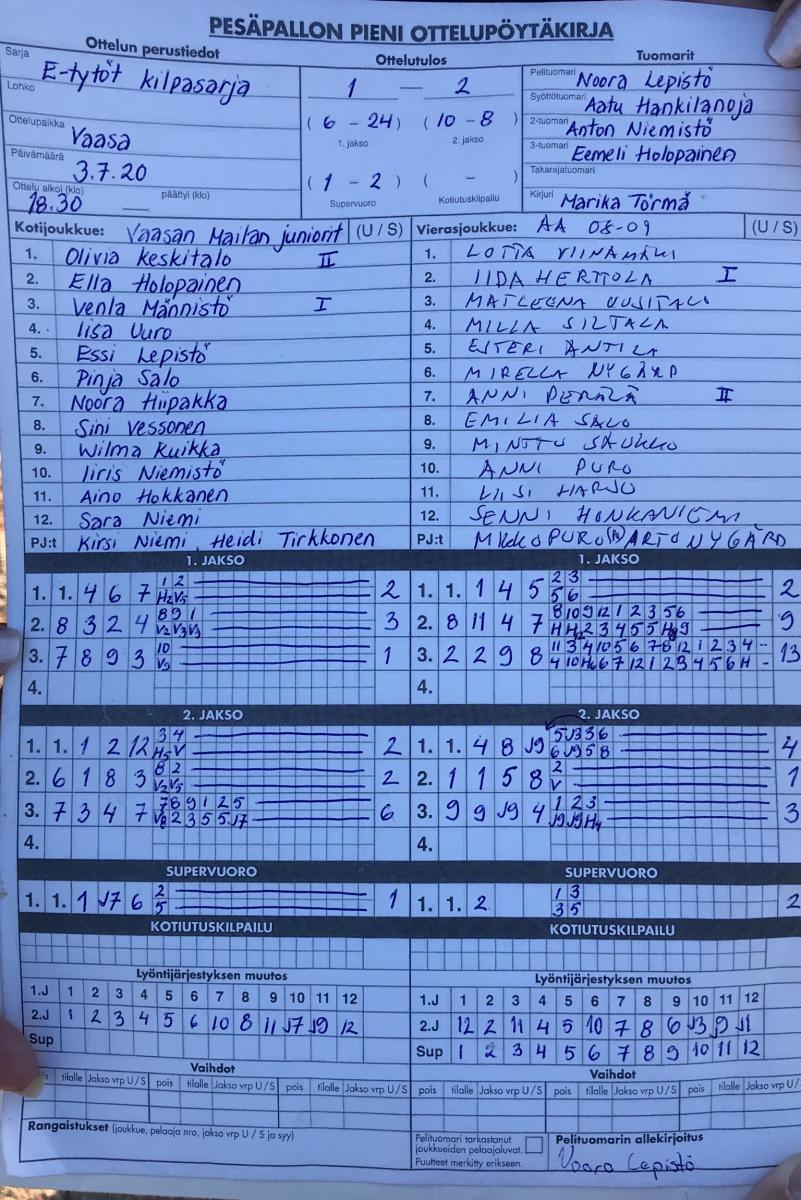 PESÄPALLON PIENI OTTELUPÖYTÄKIRJA
Ottelun perustiedot
Sarja E-tytöt kilpasarja
Lohko
Ottelupaikka Vaasa
Päivämäärä 3.7.20
Ottelu alkoi (klo) 18.30 päättyi (klo) —
Ottelutulos
1 — 2
( 6 - 24 ) ( 10 - 8 )
1. jakso 2. jakso
( 1 - 2 ) ( - )
Supervuoro Kotiutuskilpailu
Tuomarit
Pelituomari Noora Lepistö
Syöttötuomari Aatu Hankilanoja
2-tuomari Anton Niemistö
3-tuomari Eemeli Holopainen
Takarajatuomari
Kirjuri Marika Törmä
Kotijoukkue: Vaasan Mailan juniorit (U / S)
1. Olivia Keskitalo II
2. Ella Holopainen
3. Venla Männistö I
4. Iisa Uuro
5. Essi Lepistö
6. Pinja Salo
7. Noora Hiipakka
8. Sini Vessonen
9. Wilma Kuikka
10. Iiris Niemistö
11. Aino Hokkanen
12. Sara Niemi
PJ:t Kirsi Niemi, Heidi Tirkkonen
Vierasjoukkue: AA 08-09 (U / S)
1. LOTTA VIINAMÄKI
2. IIDA HERTTOLA I
3. MATLEENA UUSITALO
4. MILLA SILTALA
5. ESTERI ANTILA
6. MIRELLA NYGÅRD
7. ANNI PERÄLÄ II
8. EMILIA SALO
9. MINTTU SAUKKO
10. ANNI PURO
11. LIISI HARJU
12. SENNI HONKANIEMI
PJ:t MIKKO PURO (A) ARTO NYGÅRD
1. JAKSO
1. 1. 4 6 7 1 2 2
H2 V5
2. 8 3 2 4 8 9 1 3
V2 V3 V3
3. 7 8 9 3 10 1
V9
4.
1. JAKSO
1. 1. 1 4 5 2 3 2
5 6
2. 8 11 4 7 8 10 9 12 1 2 3 5 6 9
3. 2 2 9 8 11 3 4 10 5 6 7 8 12 1 2 3 4 - 13
4 10 H6 6 7 12 1 2 3 4 5 6 H -
4.
2. JAKSO
1. 1. 1 2 12 3 4 2
H5 V
2. 6 1 8 3 8 2 2
V2 V5
3. 7 3 4 7 7 8 9 1 2 5 6
V8 2 3 5 5 J7
4.
2. JAKSO
1. 1. 4 8 J9 5 J3 3 6 4
6 J9 5 8
2. 1 1 5 8 2 1
V
3. 9 9 J9 4 1 2 3 3
J9 J9 H4
4.
SUPERVUORO
1. 1. 1 J7 6 2 1
5
SUPERVUORO
1. 1. 2 1 3 2
3 5
KOTIUTUSKILPAILU
KOTIUTUSKILPAILU
Lyöntijärjestyksen muutos
1.J 1 2 3 4 5 6 7 8 9 10 11 12
2.J 1 2 3 4 5 6 10 8 11 J7 J9 12
Sup
Lyöntijärjestyksen muutos
1.J 1 2 3 4 5 6 7 8 9 10 11 12
2.J 12 2 11 4 5 10 7 8 6 J3 9 J1
Sup 1 2 3 4 5 6 7 8 9 10 11 12
Vaihdot
tilalle Jakso vrp U / S pois tilalle Jakso vrp U / S pois tilalle Jakso vrp U / S
Vaihdot
pois tilalle Jakso vrp U / S pois tilalle Jakso vrp U / S pois tilalle Jakso vrp U /
Rangaistukset (joukkue, pelaaja nro, jakso vrp U / S ja syy)
Pelituomari tarkastanut
joukkueiden pelaajaluvat.
Puutteet merkitty erikseen.
Pelituomarin allekirjoitus
Noora Lepistö